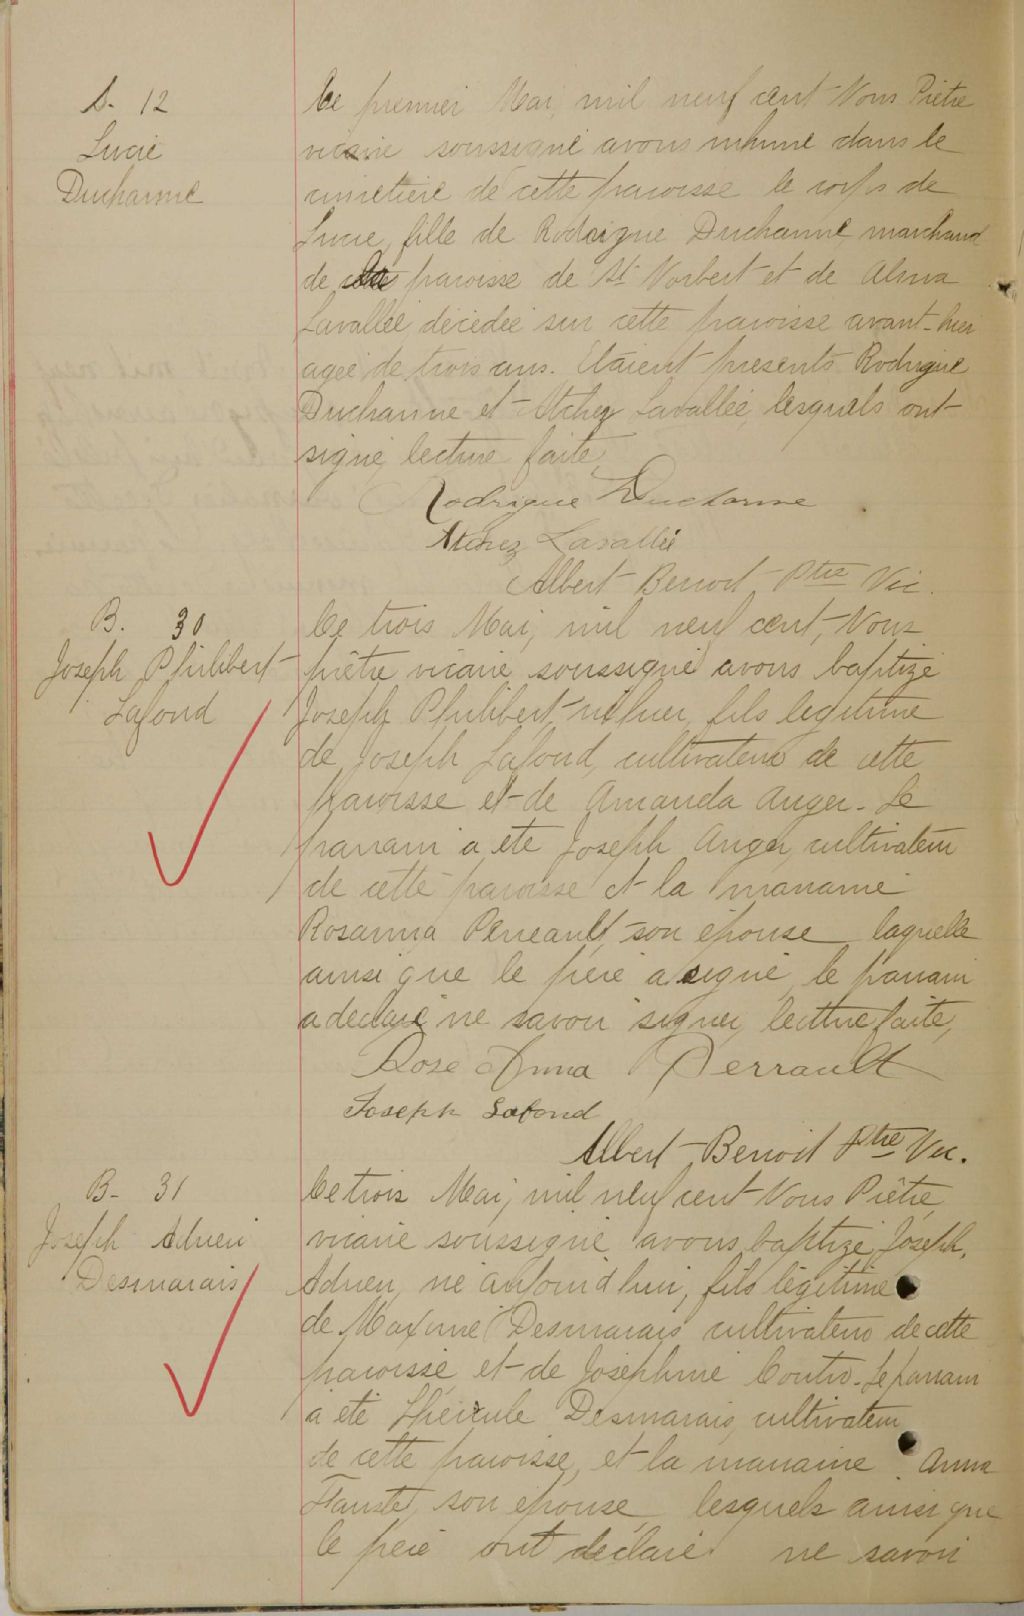 S. 12
Lucie
Ducharme
Ce premier Mai, mil neuf cent Nous Prêtre
vicaire soussigné avons inhumé dans le
cimetière de cette paroisse le corps de
Lucie, fille de Rodrigue Ducharme marchand
de paroisse de St Norbert et de Alma
Lavallée, décédée sur cette paroisse avant-hier
agée de trois ans. Etaient presents Rodrigue
Ducharme et Lavallée, lesquels ont
signé, lecture faite,
Rodrigue Ducharme
Lavallée
Albert Benoit Ptre Vic.
B. 30
Joseph Philibert
Lafond
Ce trois Mai, mil neuf cent, Nous
prêtre vicaire soussigné avons baptizé
Joseph Philibert, né hier, fils legitime
de Joseph Lafond, cultivateur de cette
paroisse et de Amanda Auger. Le
parrain a ete Joseph Auger, cultivateur
de cette paroisse et la marraine
Rosanna Perreault, son épouse laquelle
ainsi que le père a signé, le parrain
a declaré ne savoir signer, lecture faite,
Rose Anna Perrault
Joseph Lafond
Albert Benoit Ptre Vic.
B- 31
Joseph Adrien
Desmarais
Ce trois Mai, mil neuf cent Nous Prêtre,
vicaire soussigné, avons baptizé Joseph,
Adrien, né aujourd'hui, fils légitime
de Maxime Desmarais cultivateur de cette
paroisse et de Josephine Coutu. Le parrain
a eté Desmarais, cultivateur
de cette paroisse, et la marraine Anna
son épouse, lesquels ainsi que
le père ont declaré ne savoir